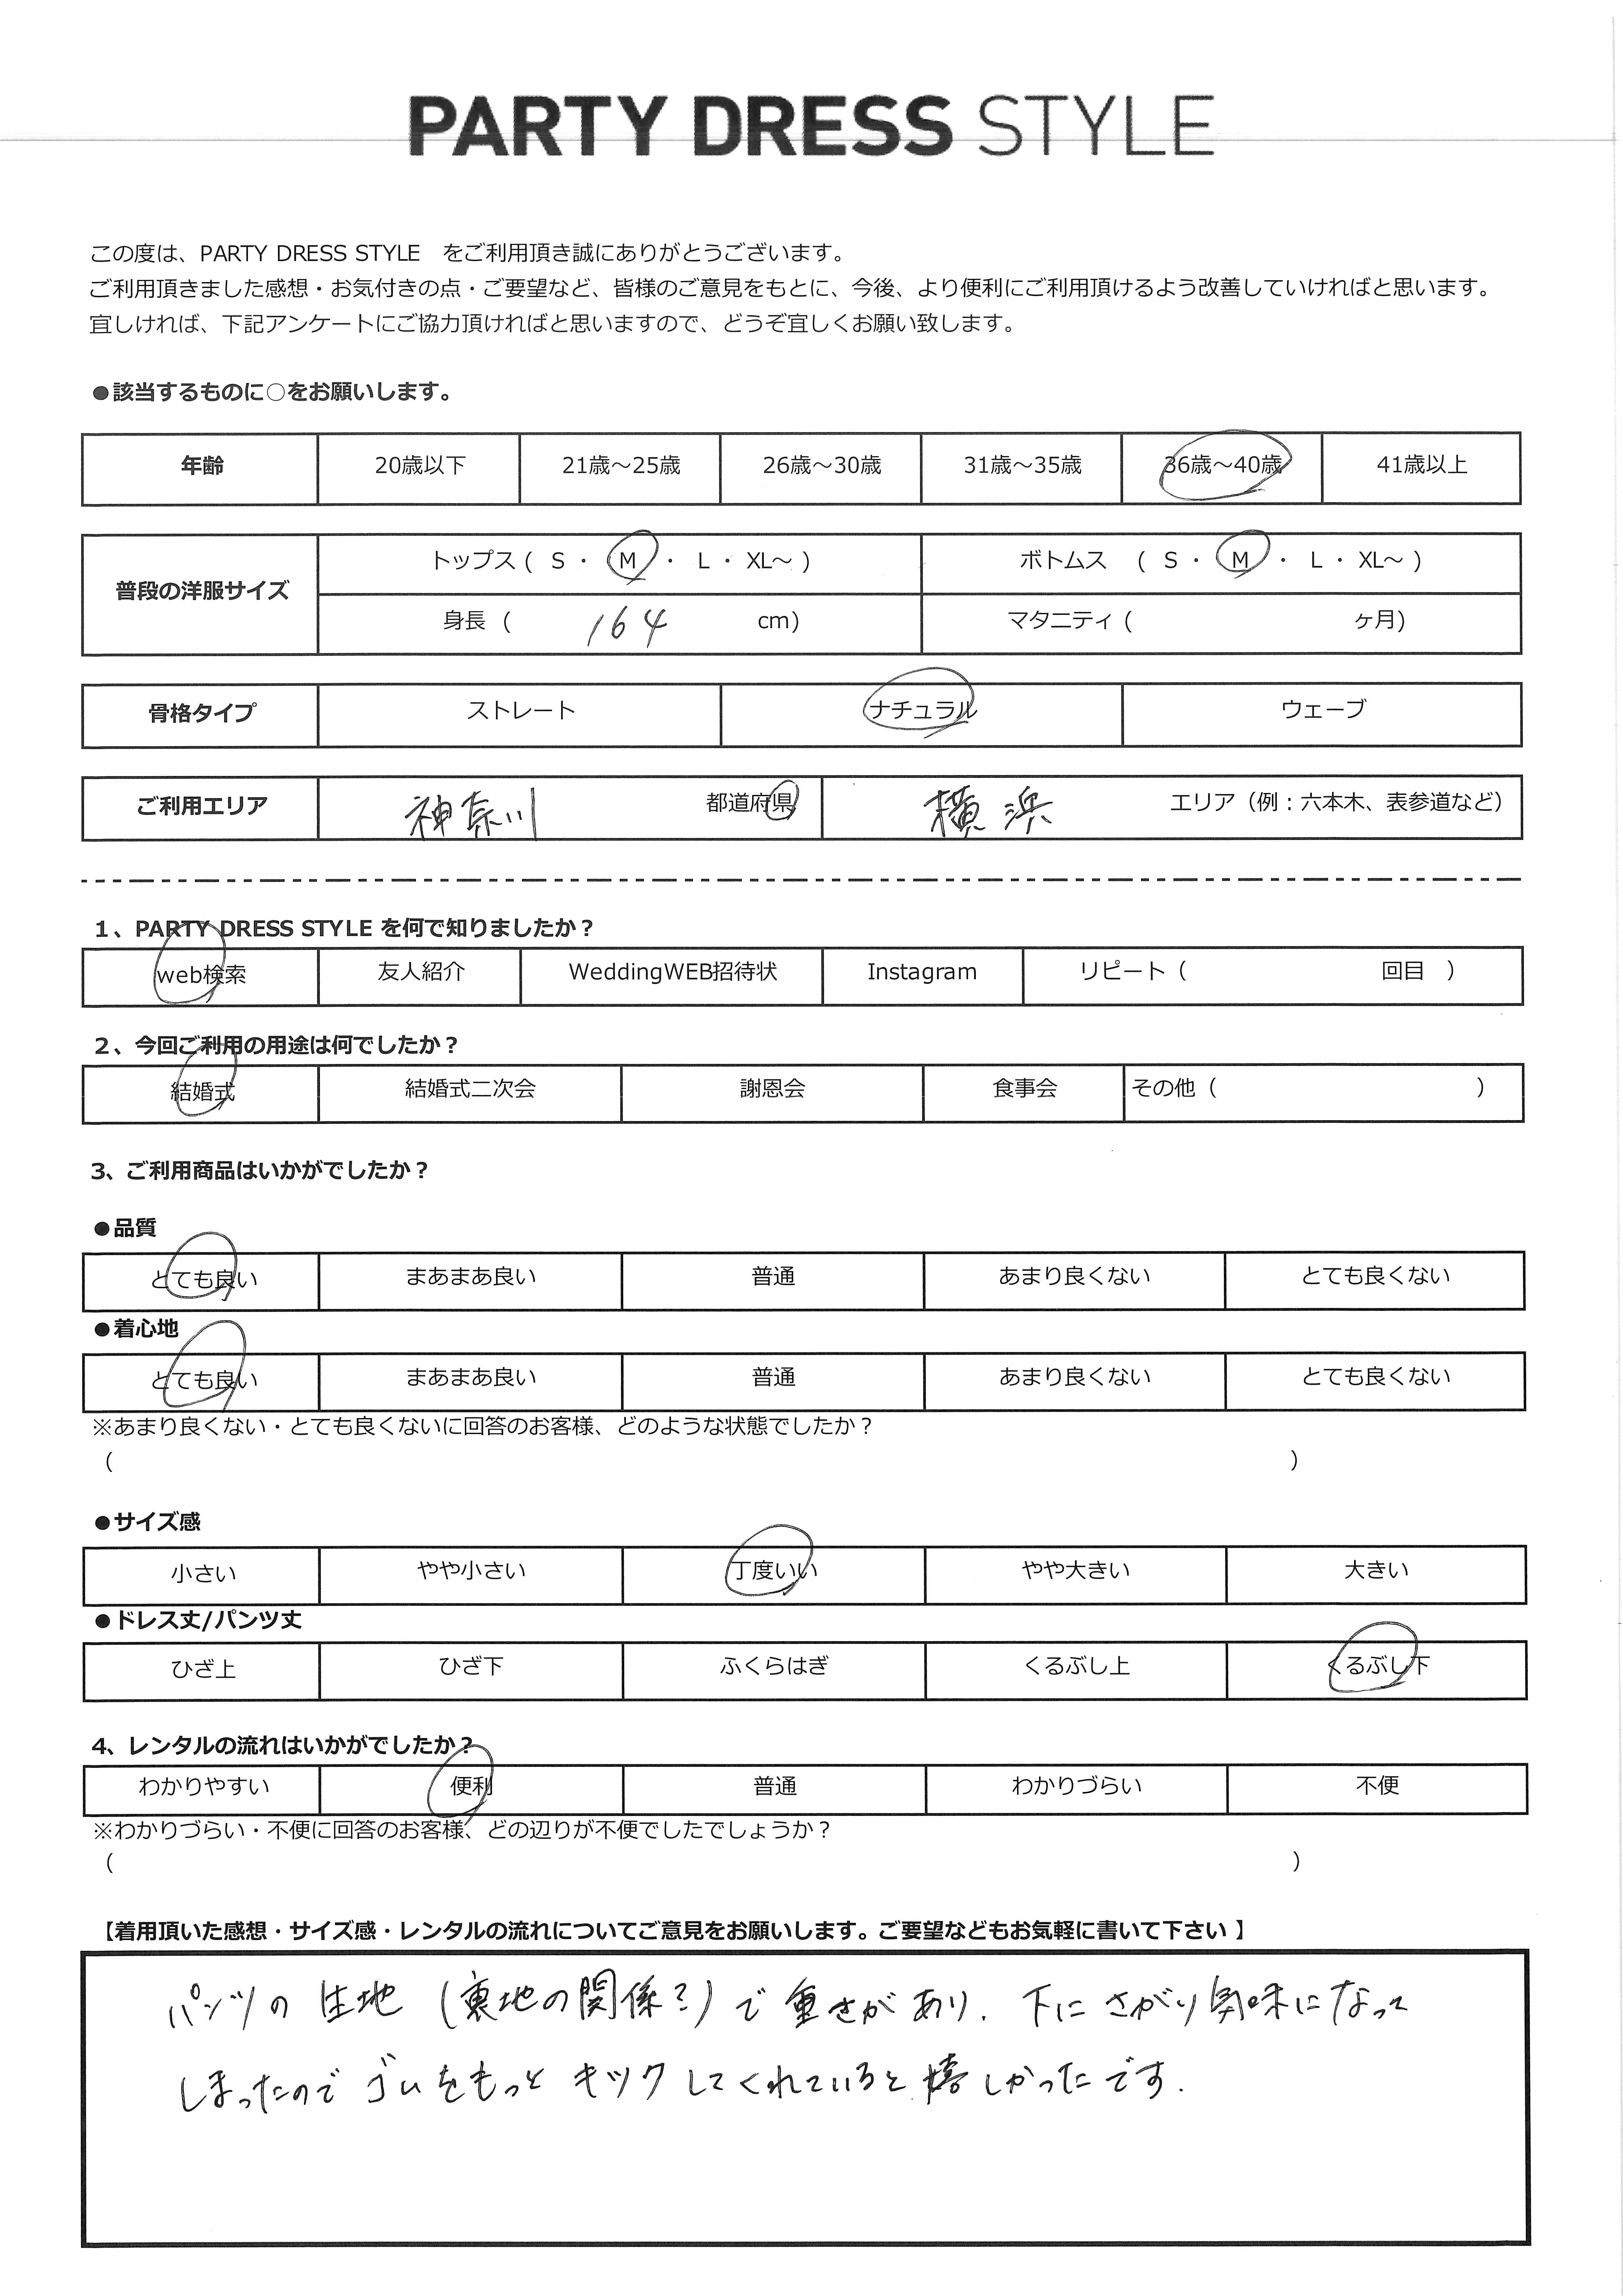 PARTY DRESS STYLE
この度は、PARTY DRESS STYLE をご利用頂き誠にありがとうございます。
ご利用頂きました感想・お気付きの点・ご要望など、皆様のご意見をもとに、今後、より便利にご利用頂けるよう改善していければと思います。
宜しければ、下記アンケートにご協力頂ければと思いますので、どうぞ宜しくお願い致します。
●該当するものに○をお願いします。
年齢 20歳以下 21歳～25歳 26歳～30歳 31歳～35歳 36歳～40歳 41歳以上
普段の洋服サイズ トップス ( S ・ M ・ L ・ XL～ ) ボトムス ( S ・ M ・ L ・ XL～ )
身長 ( 164 cm) マタニティ ( ヶ月)
骨格タイプ ストレート ナチュラル ウェーブ
ご利用エリア 神奈川 都道府県 横浜 エリア（例：六本木、表参道など）
1、PARTY DRESS STYLE を何で知りましたか？
web検索 友人紹介 WeddingWEB招待状 Instagram リピート（ 回目 ）
2、今回ご利用の用途は何でしたか？
結婚式 結婚式二次会 謝恩会 食事会 その他（ ）
3、ご利用商品はいかがでしたか？
●品質
とても良い まあまあ良い 普通 あまり良くない とても良くない
●着心地
とても良い まあまあ良い 普通 あまり良くない とても良くない
※あまり良くない・とても良くないに回答のお客様、どのような状態でしたか？
（ ）
●サイズ感
小さい やや小さい 丁度いい やや大きい 大きい
●ドレス丈/パンツ丈
ひざ上 ひざ下 ふくらはぎ くるぶし上 くるぶし下
4、レンタルの流れはいかがでしたか？
わかりやすい 便利 普通 わかりづらい 不便
※わかりづらい・不便に回答のお客様、どの辺りが不便でしたでしょうか？
（ ）
【着用頂いた感想・サイズ感・レンタルの流れについてご意見をお願いします。ご要望などもお気軽に書いて下さい 】
パンツの 生地 (裏地の関係？)で 重さがあり、下に さがり気味になって
しまったので ゴムをもっと キツク してくれていると 嬉しかったです.